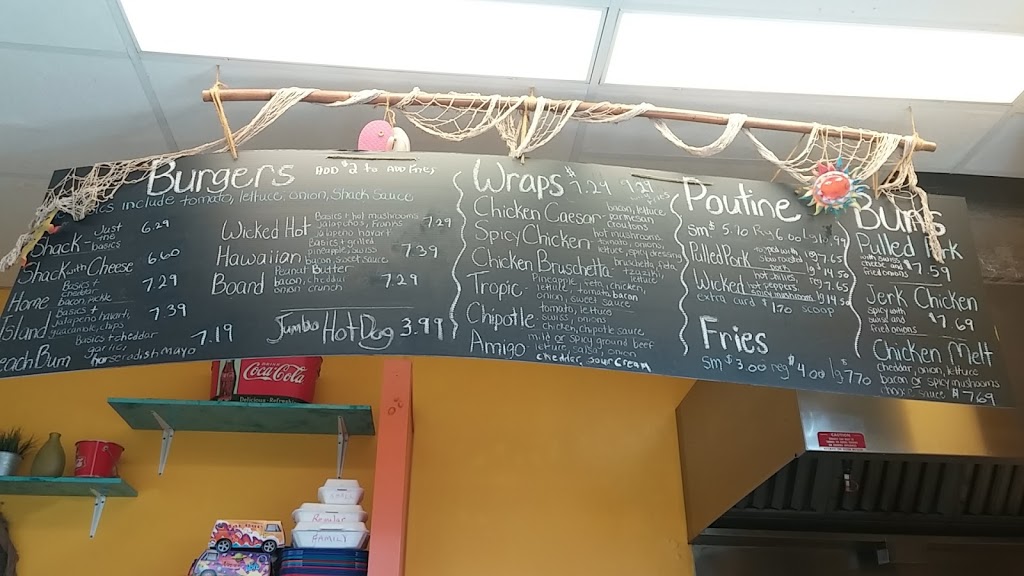 Burgers ADD $2 to ADD Fries
include tomato, lettuce, onion, Shack Sauce
Shack - Just the basics 6.29
Shack with Cheese 6.60
Home Basics + bacon, pickle 7.29
Island Basics + jalapeno havarti, chips 7.39
Beach Bum Basics + cheddar garlic horseradish mayo 7.19
Wicked Hot Basics + hot mushrooms jalapeno havarti 7.29
Hawaiian Basics + grilled pineapple, Swiss sweet sauce 7.39
Board Peanut Butter bacon, cheddar onion crunch 7.29
Jumbo Hot Dog 3.99
Wraps $7.24
Chicken Caesar bacon, lettuce parmesan croutons
Spicy Chicken hot mushrooms, tomato, onions, spicy dressing
Chicken Bruschetta
Tropic - Pineapple, feta, chicken, lettuce, tomato, bacon onion, sweet sauce
Chipotle tomato, lettuce swiss, onions chicken, chipotle sauce
Amigo mild or spicy ground beef salsa, onion cheddar, sour cream
Poutine
sm $ 5.70 Reg 6.00
Pulled Pork slow roasted reg 7.65 lg 14.50
Wicked hot peppers hot mushrooms reg 7.65 lg 14.50
extra curd $1.70 scoop
Fries
sm $3.00 reg $4.00 lg $7.70
Bums
Pulled Pork
fried onions $7.59
Jerk Chicken
Spicy with swiss and fried onions
$7.69
Chicken Melt
cheddar, onion, lettuce
bacon or spicy mushrooms
sauce $7.69
Coca-Cola
Delicious · Refreshing
Regular
FAMILY
CAUTION